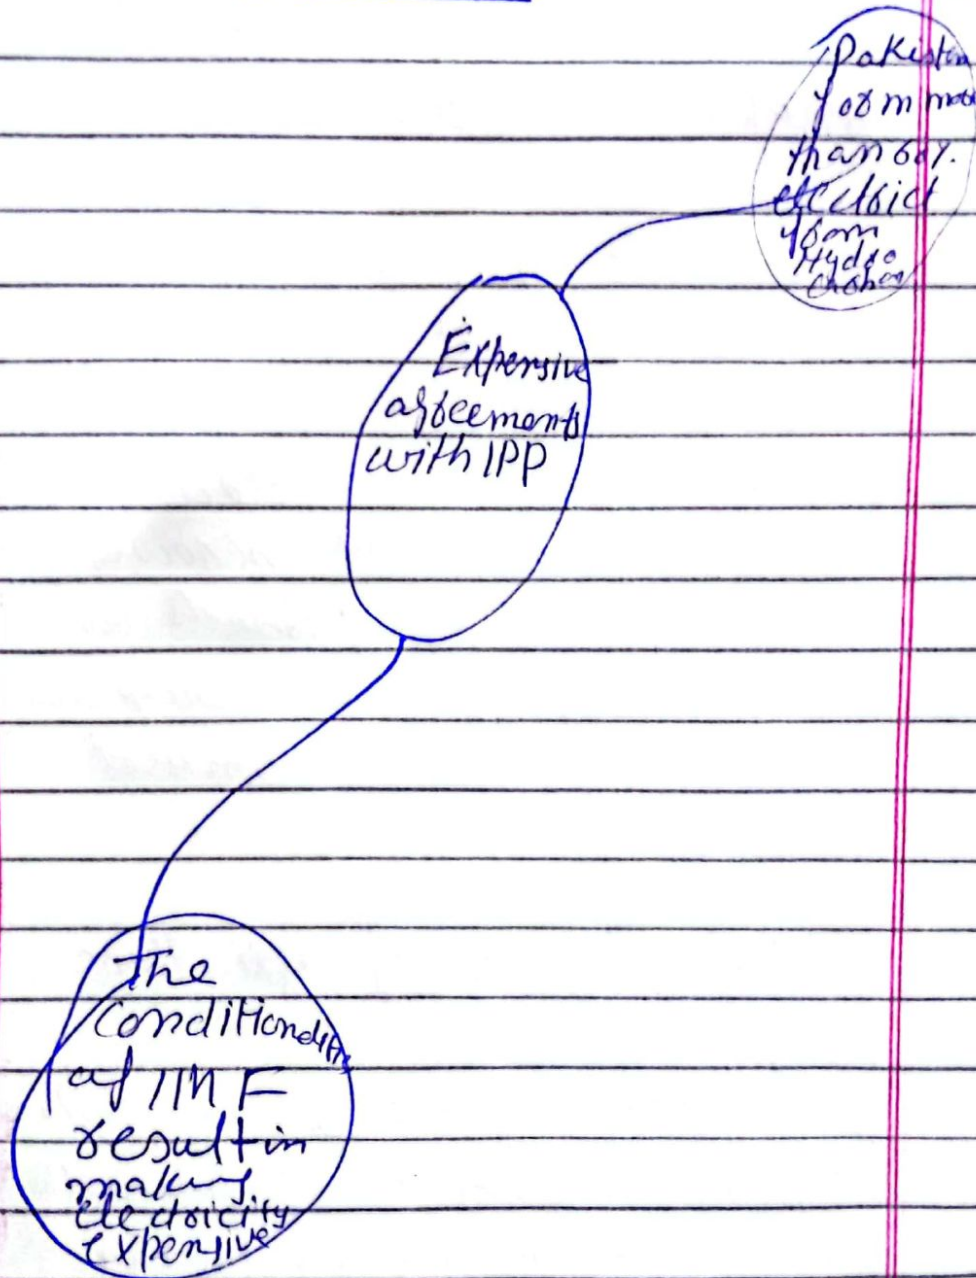 Pakistan
form more
than 60%.
electrict
from
Hydro
Expensive
agreements
with IPP
The
Conditionality
of IMF
result in
making
electricity
expensive